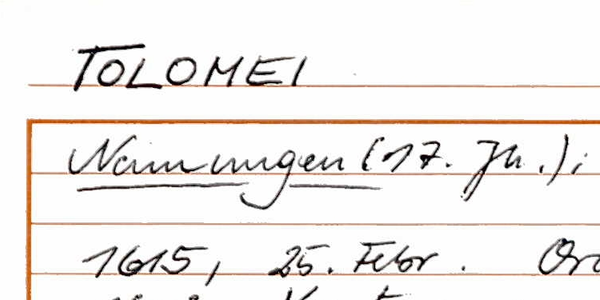 TOLOMEI
Nennungen (17. Jh.):
1615, 25. Febr.